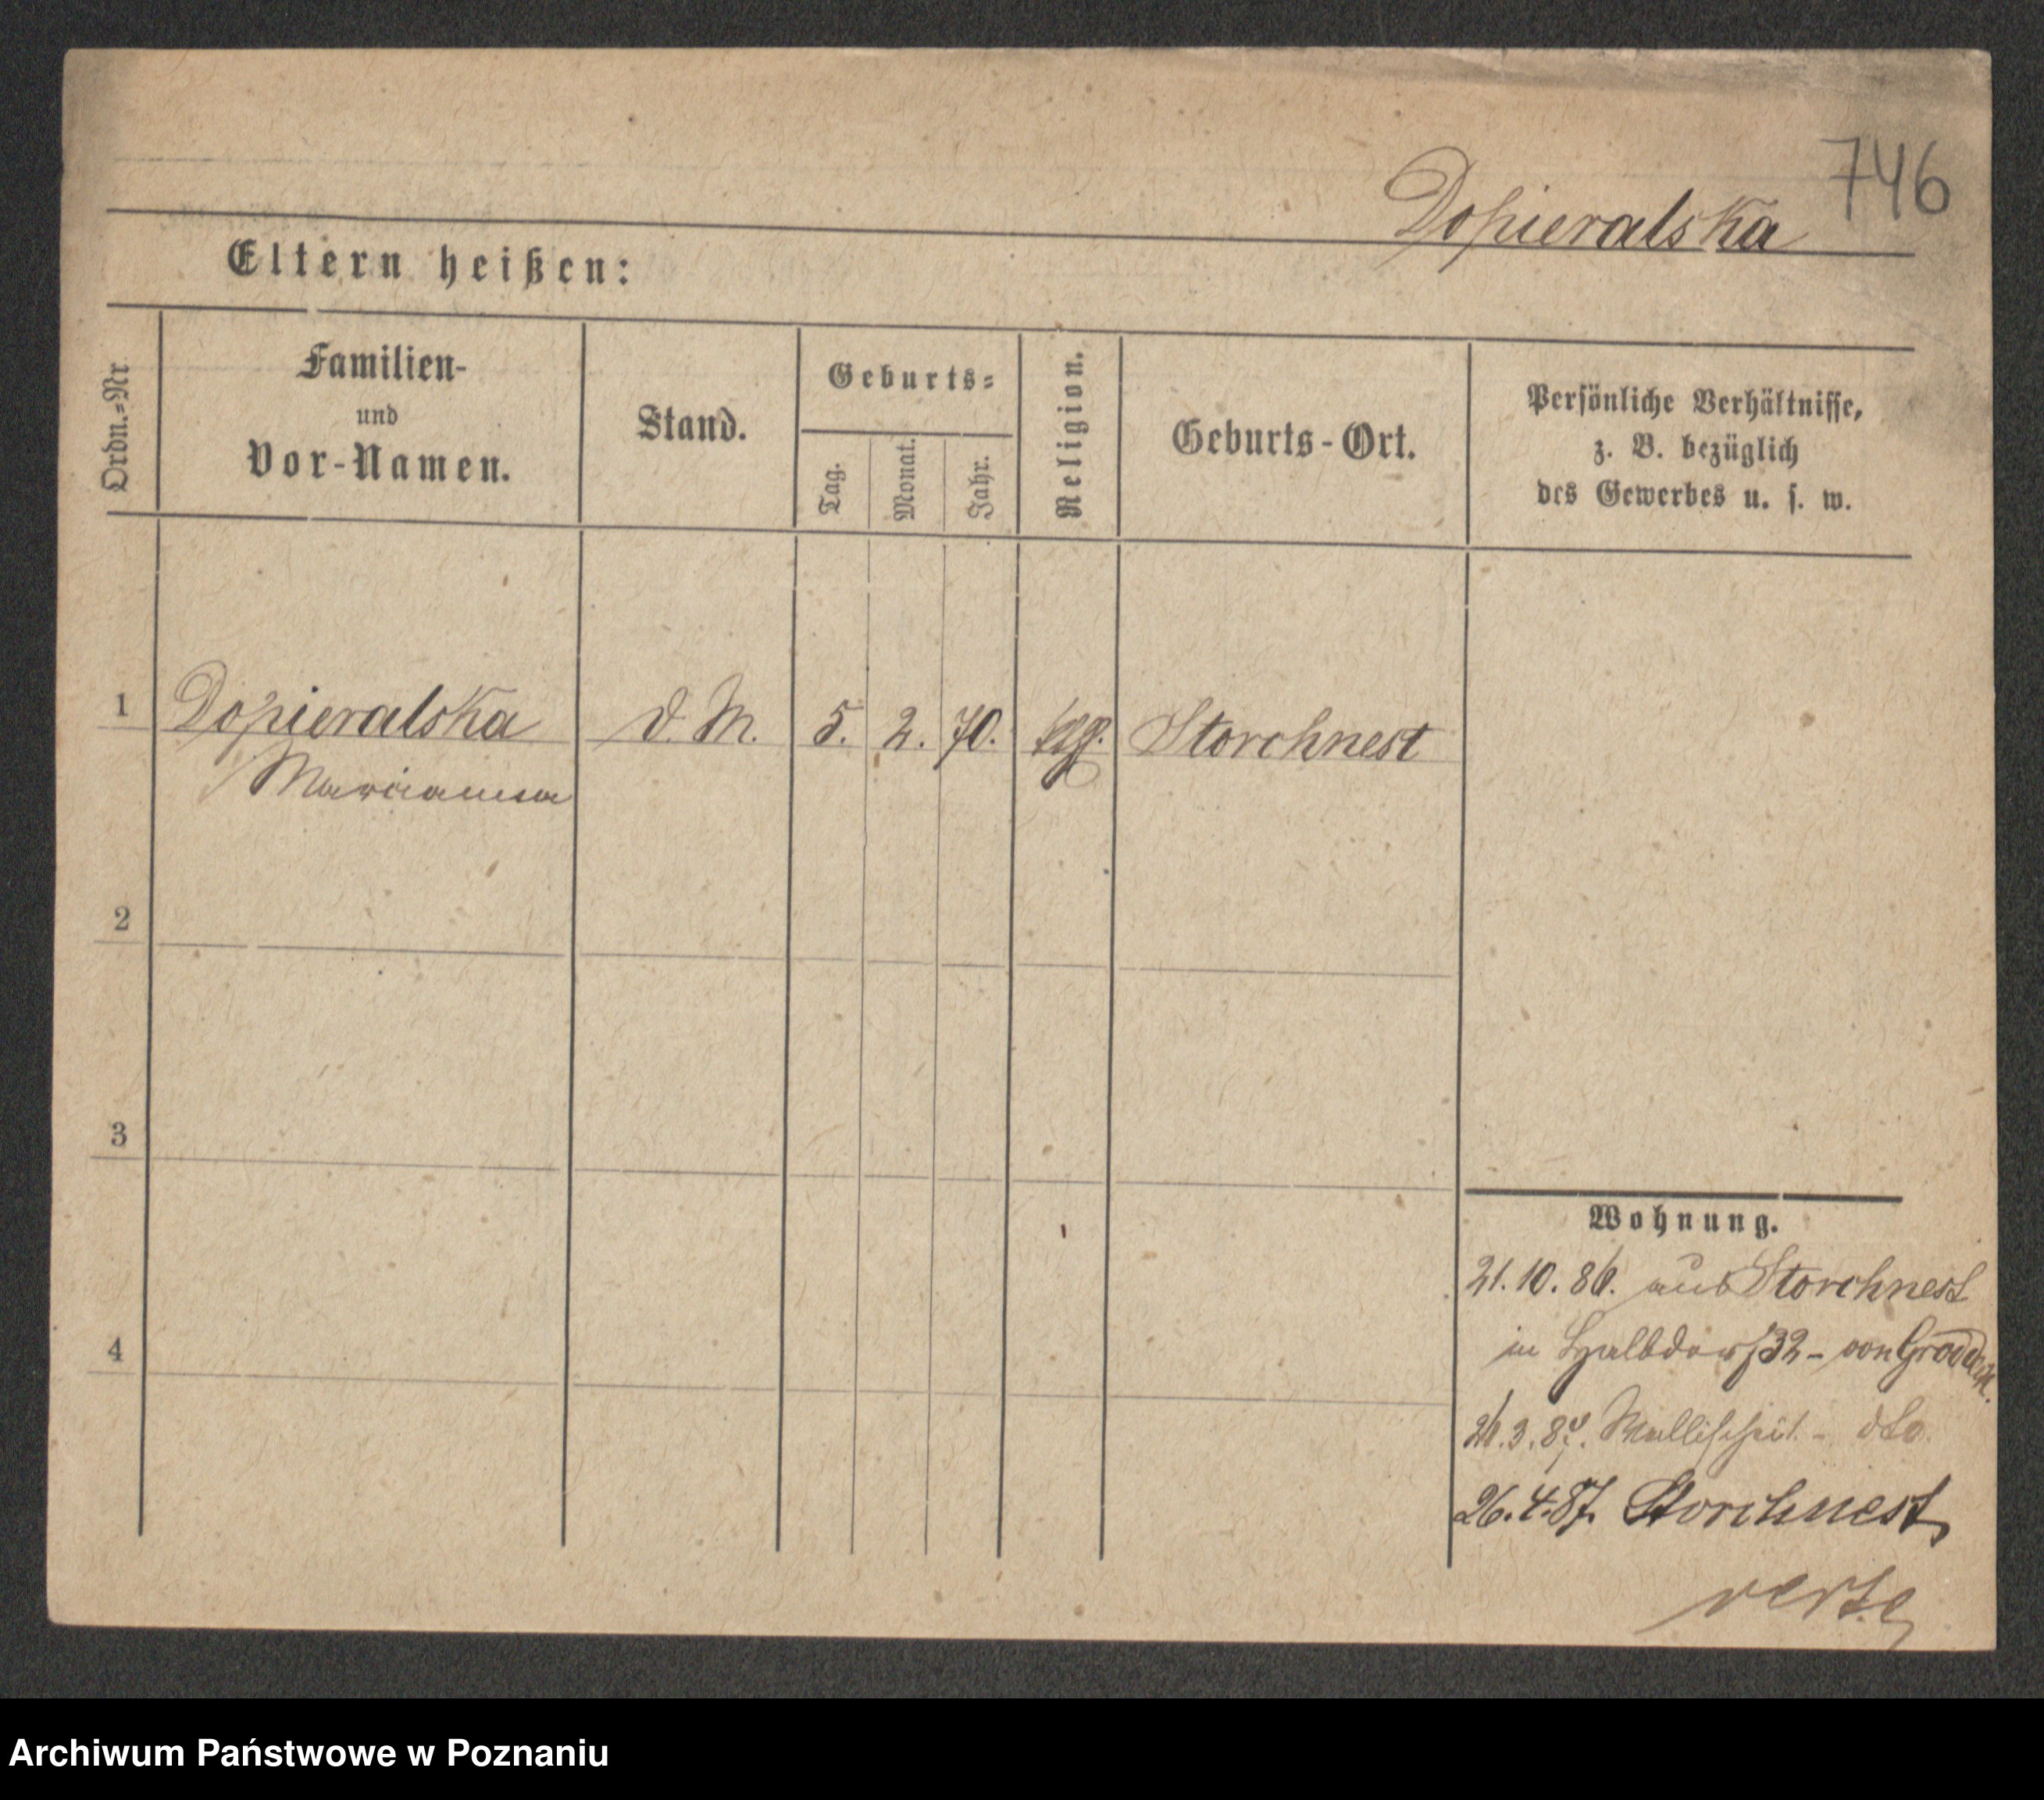 746
Dopieralska
Eltern heißen:
Ordn.=Nr
Familien-
und
Vor-Namen.
Stand.
Geburts=
Tag.
Monat.
Jahr.
Religion.
Geburts-Ort.
Persönliche Verhältnisse,
z. B. bezüglich
des Gewerbes u. s. w.
1 Dopieralska d. M. 5. 2. 70. Storchnest
Marianna
2
3
4
Wohnung.
21.10.86. aus Storchnest
in Halbdorf 32 - von
26.3.87. - dto.
26.4.87. Storchnest
Archiwum Państwowe w Poznaniu